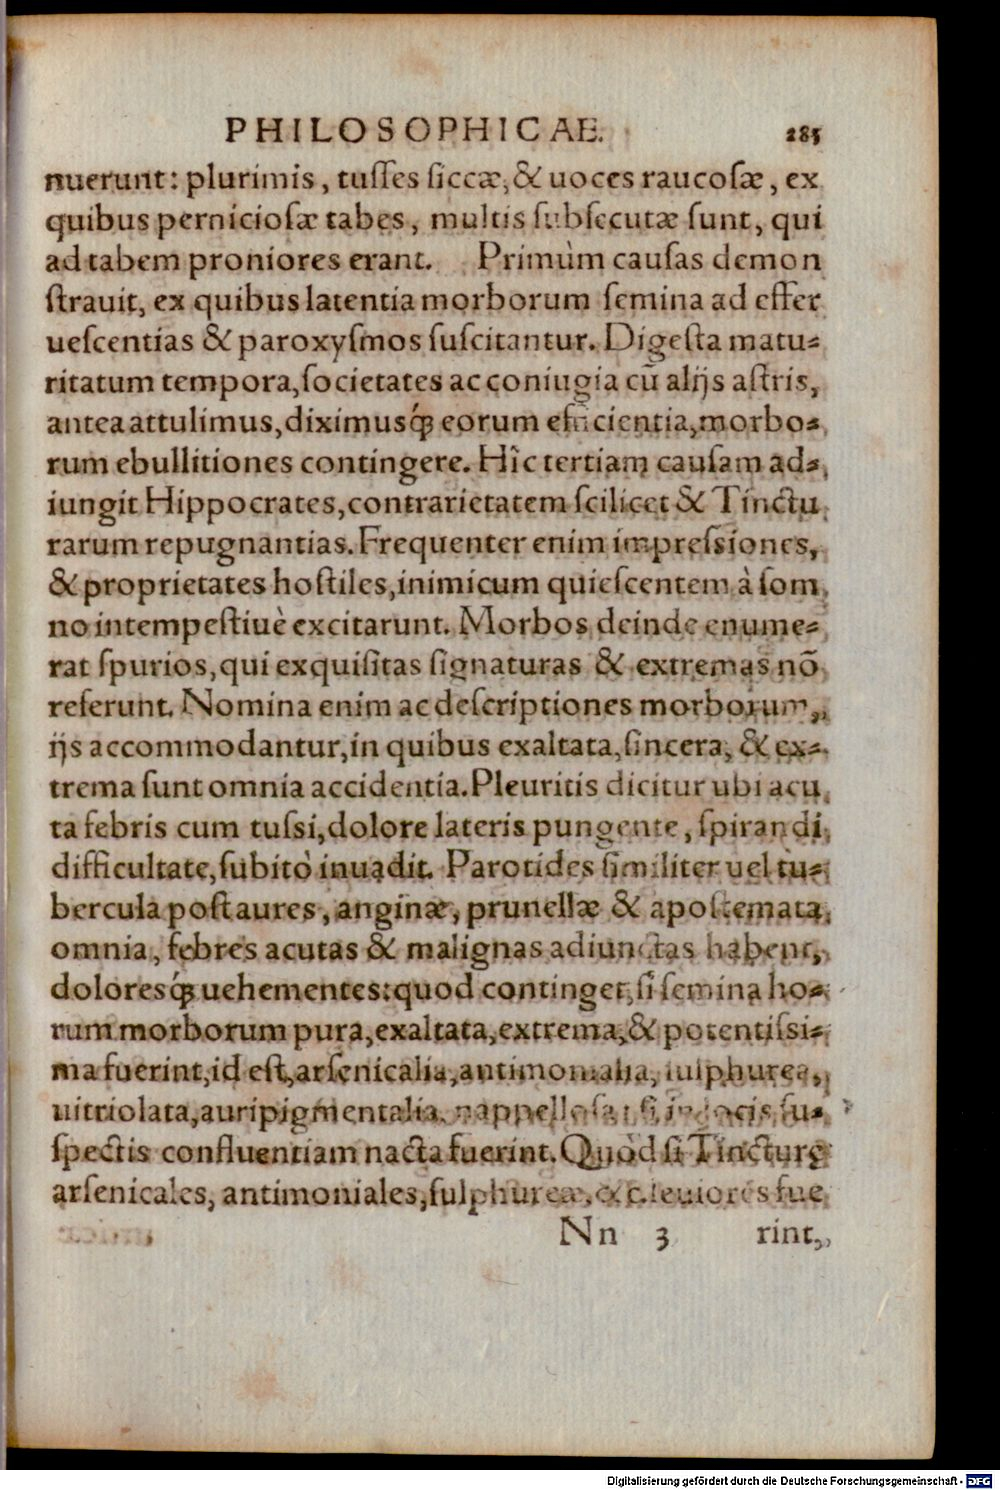 PHILOSOPHICAE. 285
nuerunt: plurimis, tusses siccæ, & uoces raucosæ, ex
quibus perniciosæ tabes, multis subsecutæ sunt, qui
ad tabem proniores erant. Primùm causas demon
strauit, ex quibus latentia morborum semina ad effer
uescentias & paroxysmos suscitantur. Digesta matu-
ritatum tempora, societates ac coniugia cũ alijs astris,
antea attulimus, diximusq́; eorum efficientia, morbo-
rum ebullitiones contingere. Hîc tertiam causam ad-
iungit Hippocrates, contrarietatem scilicet & Tinctu
rarum repugnantias. Frequenter enim impressiones,
& proprietates hostiles, inimicum quiescentem à som
no intempestiuè excitarunt. Morbos deinde enume-
rat spurios, qui exquisitas signaturas & extremas nõ
referunt. Nomina enim ac descriptiones morborum,
ijs accommodantur, in quibus exaltata, sincera, & ex-
trema sunt omnia accidentia. Pleuritis dicitur ubi acu
ta febris cum tussi, dolore lateris pungente, spirandi
difficultate, subitò inuadit. Parotides similiter uel tu-
bercula post aures, anginæ, prunellæ & apostemata
omnia, febres acutas & malignas adiunctas habent,
doloresq́; uehementes: quod continget, si semina ho-
rum morborum pura, exaltata, extrema, & potentissi-
ma fuerint, id est, arsenicalia, antimonialia, sulphurea,
uitriolata, auripigmentalia, nappellosa: si in locis su-
spectis confluentiam nacta fuerint. Quòd si Tincturę
arsenicales, antimoniales, sulphureæ, leuiores fue
Nn 3 rint,
Digitalisierung gefördert durch die Deutsche Forschungsgemeinschaft - DFG